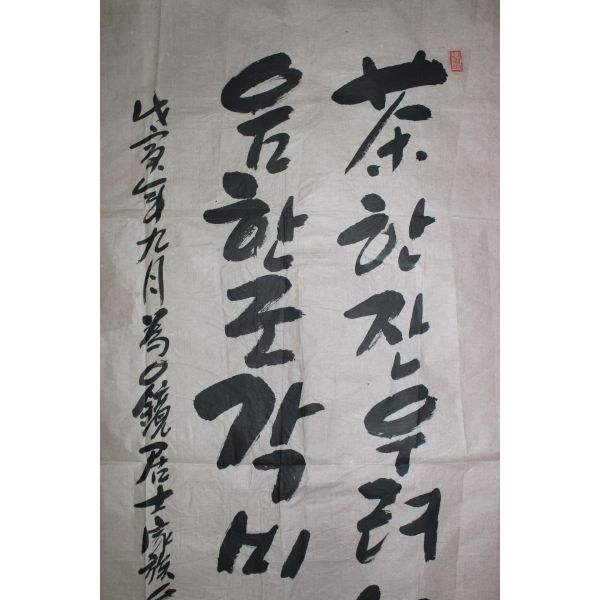 茶한잔우려
음한각비
戊寅年九月為○鏡居士家族